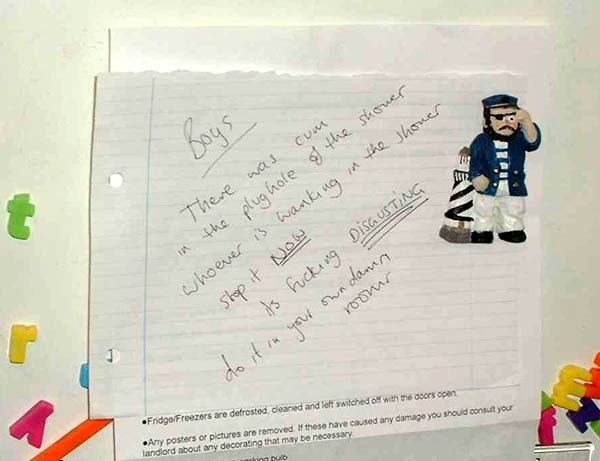 Boys
There was cum
in the plughole of the shower
whoever is wanking in the shower
stop it NOW
its fucking DISGUSTING
do it in your own damn
rooms
•Fridge/Freezers are defrosted, cleaned and left switched off with the doors open.
•Any posters or pictures are removed. If these have caused any damage you should consult your
landlord about any decorating that may be necessary
working bulb
t
r